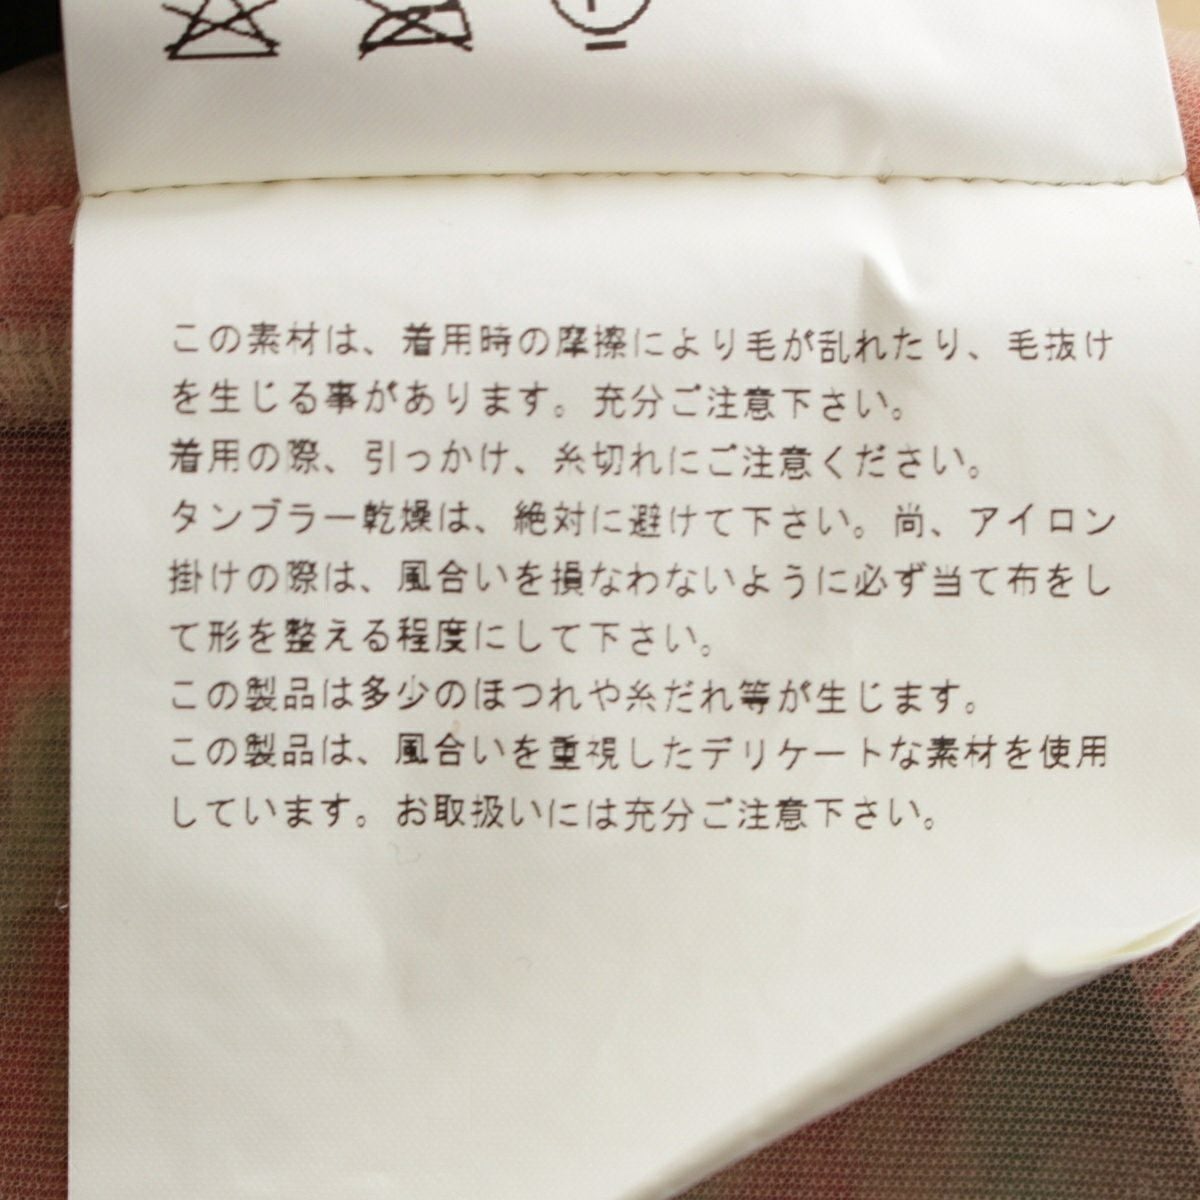 この素材は、着用時の摩擦により毛が乱れたり、毛抜け
を生じる事があります。充分ご注意下さい。
着用の際、引っかけ、糸切れにご注意ください。
タンブラー乾燥は、絶対に避けて下さい。尚、アイロン
掛けの際は、風合いを損なわないように必ず当て布をし
て形を整える程度にして下さい。
この製品は多少のほつれや糸だれ等が生じます。
この製品は、風合いを重視したデリケートな素材を使用
しています。お取扱いには充分ご注意下さい。